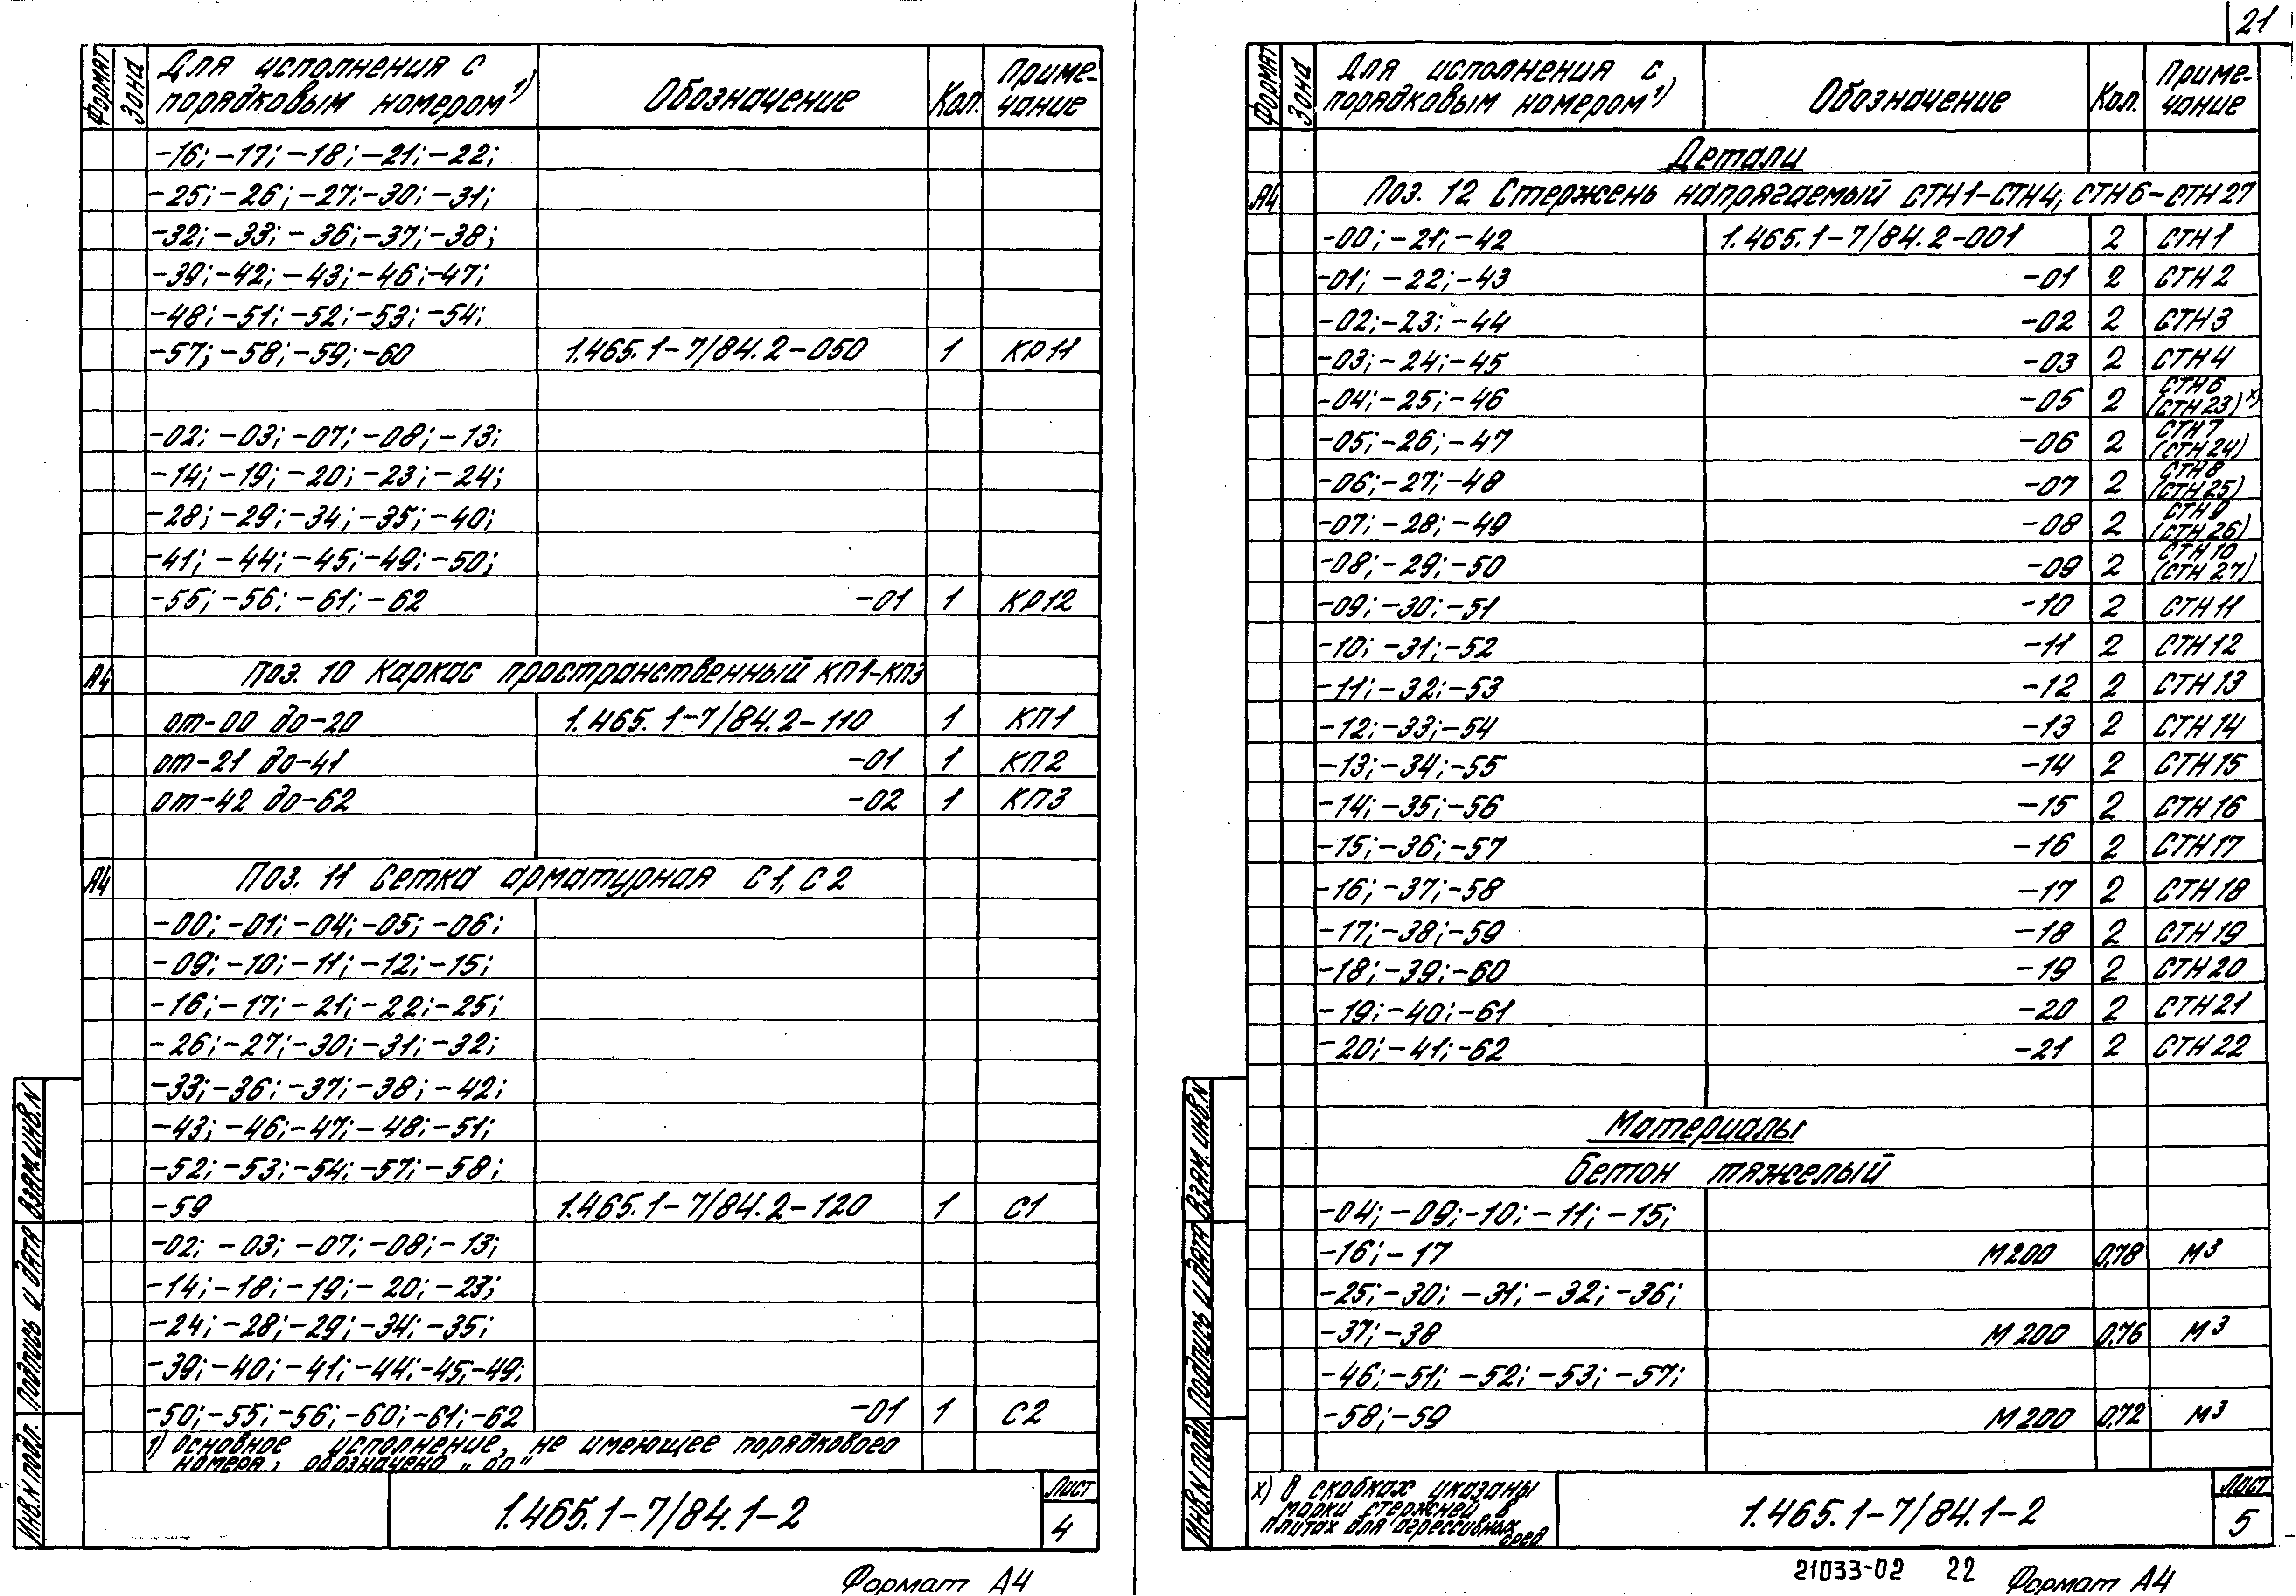 21
ФОРМАТ
Зона
Для исполнения с порядковым номером¹⁾
Обозначение
Кол.
Приме-
чание
-16; -17; -18; -21; -22;
-25; -26; -27; -30; -31;
-32; -33; -36; -37; -38;
-39; -42; -43; -46; -47;
-48; -51; -52; -53; -54;
-57; -58; -59; -60 1.465.1-7/84.2-050 1 КР11
-02; -03; -07; -08; -13;
-14; -19; -20; -23; -24;
-28; -29; -34; -35; -40;
-41; -44; -45; -49; -50;
-55; -56; -61; -62 -01 1 КР12
А4 Поз. 10 Каркас пространственный КП1-КП3
от-00 до-20 1.465.1-7/84.2-110 1 КП1
от-21 до-41 -01 1 КП2
от-42 до-62 -02 1 КП3
А4 Поз. 11 Сетка арматурная С1, С2
-00; -01; -04; -05; -06;
-09; -10; -11; -12; -15;
-16; -17; -21; -22; -25;
-26; -27; -30; -31; -32;
-33; -36; -37; -38; -42;
-43; -46; -47; -48; -51;
-52; -53; -54; -57; -58;
-59 1.465.1-7/84.2-120 1 С1
-02; -03; -07; -08; -13;
-14; -18; -19; -20; -23;
-24; -28; -29; -34; -35;
-39; -40; -41; -44; -45; -49;
-50; -55; -56; -60; -61; -62 -01 1 С2
1) Основное исполнение, не имеющее порядкового
номера, обозначено „00"
ИНВ.N подл. Подпись и дата ВЗАМ.ИНВ.N
1.465.1-7/84.1-2
Лист
4
Формат А4
ФОРМАТ
Зона
Для исполнения с порядковым номером¹⁾
Обозначение
Кол.
Приме-
чание
Детали
А4 Поз. 12 Стержень напрягаемый СТН1-СТН4, СТН6-СТН27
-00; -21; -42 1.465.1-7/84.2-001 2 СТН1
-01; -22; -43 -01 2 СТН2
-02; -23; -44 -02 2 СТН3
-03; -24; -45 -03 2 СТН4
-04; -25; -46 -05 2 СТН6 (СТН23) х)
-05; -26; -47 -06 2 СТН7 (СТН24)
-06; -27; -48 -07 2 СТН8 (СТН25)
-07; -28; -49 -08 2 СТН9 (СТН26)
-08; -29; -50 -09 2 СТН10 (СТН27)
-09; -30; -51 -10 2 СТН11
-10; -31; -52 -11 2 СТН12
-11; -32; -53 -12 2 СТН13
-12; -33; -54 -13 2 СТН14
-13; -34; -55 -14 2 СТН15
-14; -35; -56 -15 2 СТН16
-15; -36; -57 -16 2 СТН17
-16; -37; -58 -17 2 СТН18
-17; -38; -59 -18 2 СТН19
-18; -39; -60 -19 2 СТН20
-19; -40; -61 -20 2 СТН21
-20; -41; -62 -21 2 СТН22
Материалы
Бетон тяжелый
-04; -09; -10; -11; -15;
-16; -17 М200 0,78 м³
-25; -30; -31; -32; -36;
-37; -38 М200 0,76 м³
-46; -51; -52; -53; -57;
-58; -59 М200 0,72 м³
х) В скобках указаны
марки стержней в
плитах для агрессивных
сред
ИНВ.N подл. Подпись и дата ВЗАМ.ИНВ.N
1.465.1-7/84.1-2
Лист
5
21033-02 22
Формат А4